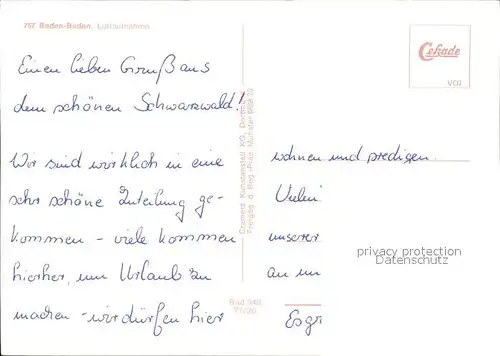 757 Baden-Baden. Luftaufnahme
Cekade
VCG
Einen lieben Gruß aus
dem schönen Schwarzwald!
Wir sind wirklich in eine
sehr schöne Zuteilung ge-
kommen - viele kommen
hierher, um Urlaub zu
machen - wir dürfen hier
Cramers Kunstanstalt KG, Dortmund
Freigeg. d. Reg.-Präs. Münster
Bild 940
77/20
wohnen und predigen.
Vielen
unserer
an un
Es gr
privacy protection
Datenschutz